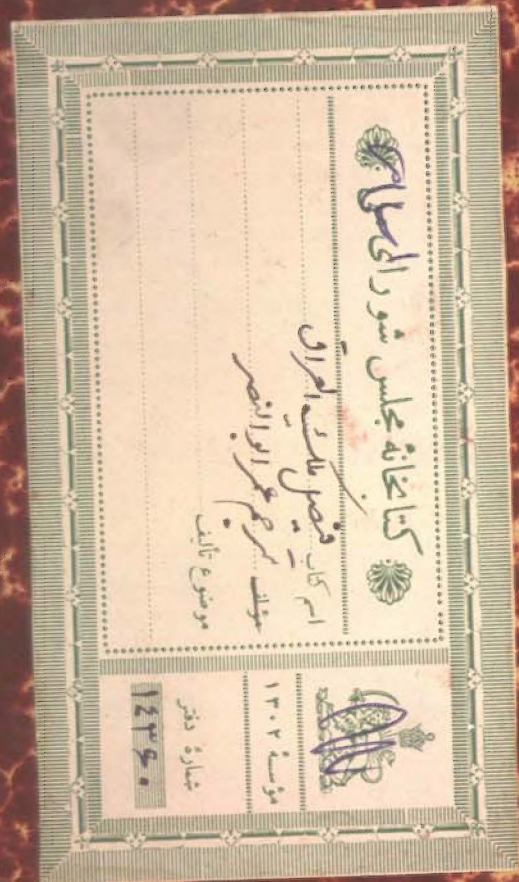 کتابخانهٔ مجلس شورای اسلامی
اسم کتاب فیصل ملک العراق
مؤلف مترجم عمر ابو النصر
موضوع تألیف
مؤسسهٔ ۱۳۰۲
شمارهٔ دفتر
۱۴۳۶۰